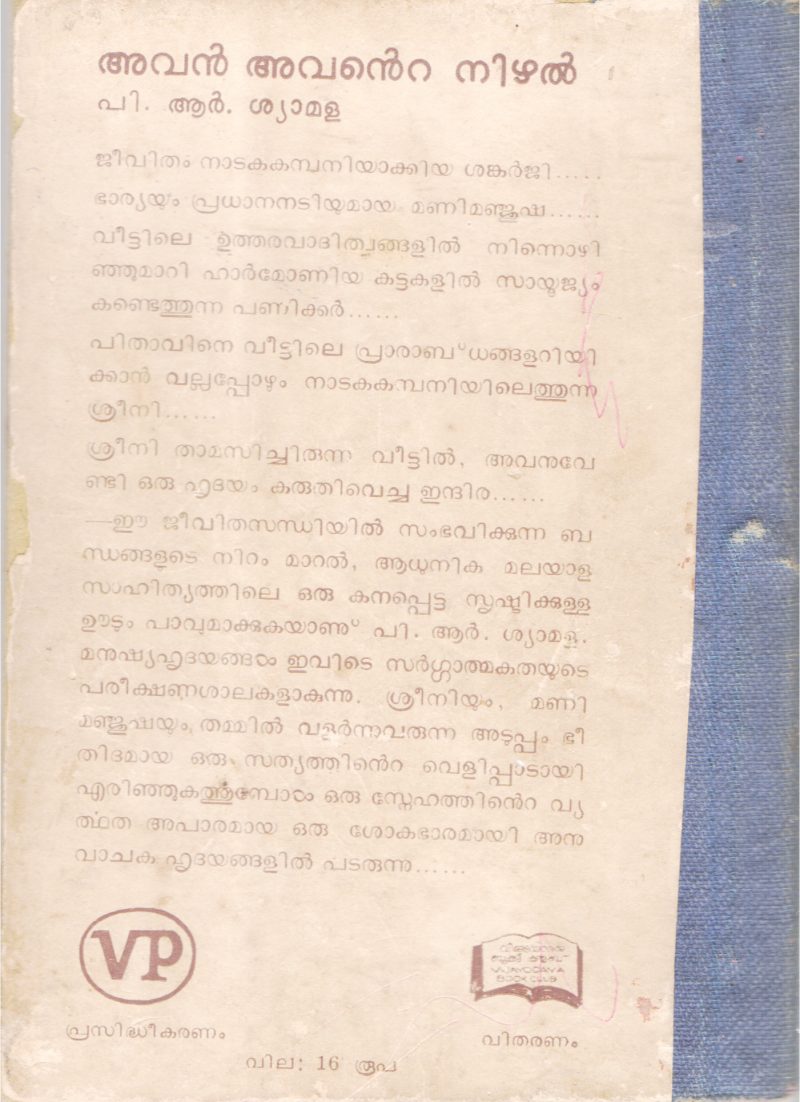 അവൻ അവൻെറ നിഴൽ
പി. ആർ. ശ്യാമള
ജീവിതം നാടകകമ്പനിയാക്കിയ ശങ്കർജി.....
ഭാര്യയും പ്രധാനനടിയുമായ മണിമഞ്ജുഷ......
വീട്ടിലെ ഉത്തരവാദിത്വങ്ങളിൽ നിന്നൊഴി
ഞ്ഞുമാറി ഹാർമോണിയ കട്ടകളിൽ സായൂജ്യം
കണ്ടെത്തുന്ന പണിക്കർ......
പിതാവിനെ വീട്ടിലെ പ്രാരാബ്ധങ്ങളറിയി
ക്കാൻ വല്ലപ്പോഴും നാടകകമ്പനിയിലെത്തുന്ന
ശ്രീനി......
ശ്രീനി താമസിച്ചിരുന്ന വീട്ടിൽ, അവനുവേ
ണ്ടി ഒരു ഹൃദയം കരുതിവെച്ച ഇന്ദിര......
—ഈ ജീവിതസന്ധിയിൽ സംഭവിക്കുന്ന ബ
ന്ധങ്ങളുടെ നിറം മാറൽ, ആധുനിക മലയാള
സാഹിത്യത്തിലെ ഒരു കനപ്പെട്ട സൃഷ്ടിക്കുള്ള
ഊടും പാവുമാക്കുകയാണു് പി. ആർ. ശ്യാമള.
മനുഷ്യഹൃദയങ്ങൾ ഇവിടെ സർഗ്ഗാത്മകതയുടെ
പരീക്ഷണശാലകളാകുന്നു. ശ്രീനിയും, മണി
മഞ്ജുഷയും തമ്മിൽ വളർന്നുവരുന്ന അടുപ്പം ഭീ
തിദമായ ഒരു സത്യത്തിൻെറ വെളിപ്പാടായി
എരിഞ്ഞുകത്തുമ്പോൾ ഒരു സ്നേഹത്തിൻെറ വ്യ
ർത്ഥത അപാരമായ ഒരു ശോകഭാരമായി അനു
വാചക ഹൃദയങ്ങളിൽ പടരുന്നു......
VP
വിജയോദയ
ബുക്ക് ക്ലബ്
VIJAYODAYA
BOOK CLUB
പ്രസിദ്ധീകരണം
വിതരണം
വില: 16 രൂപ